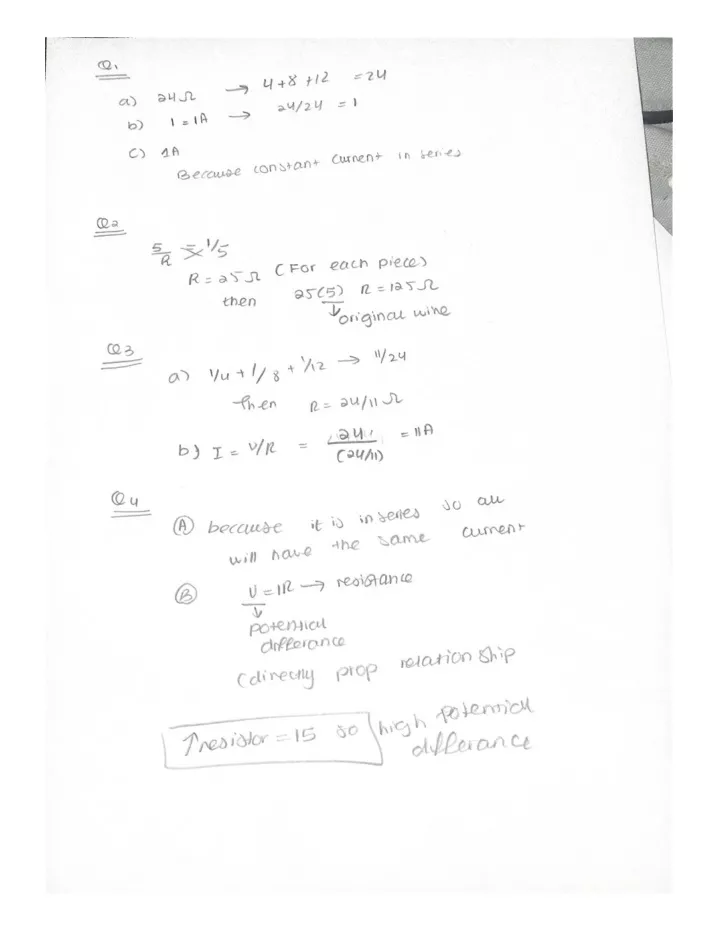 Q1
a) 24Ω → 4+8+12 = 24
b) I = 1A → 24/24 = 1
c) 1A
Because constant current in series
Q2
5/R = 1/5
R = 25Ω (For each piece)
then 25(5) R = 125Ω
↓ original wire
Q3
a) 1/4 + 1/8 + 1/12 → 11/24
Then R = 24/11 Ω
b) I = V/R = 24/(24/11) = 11A
Q4
(A) because it is in series so all
will have the same current
(B) V = IR → resistance
↓
potential
differance
(directly prop relationship
↑ resistor = 15 so high potential
differance